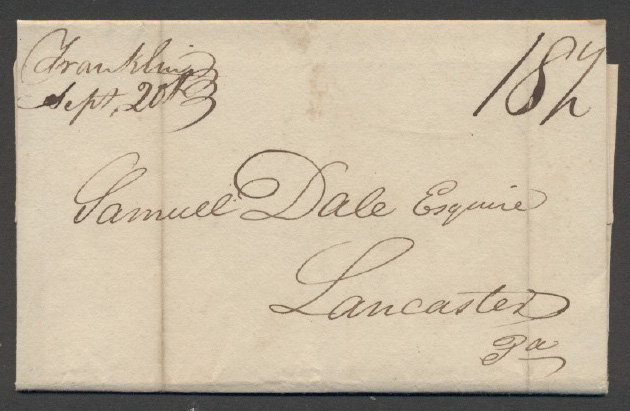 Franklin
Sept, 20th
18½
Samuel Dale Esquire
Lancaster
Pa